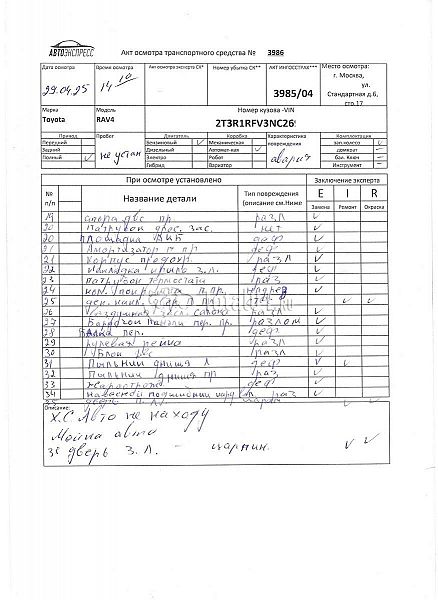 АВТОЭКСПРЕСС
Акт осмотра транспортного средства № 3986
Дата осмотра
Время осмотра
Акт осмотра эксперта СК*
Номер убытка СК**
АКТ ИНГОССТРАХ***
Место осмотра:
г. Москва,
ул.
Стандартная д.6,
стр.17
29.04.25
14 10
3985/04
Марка
Модель
Номер кузова -VIN
Toyota
RAV4
2T3R1RFV3NC26
Привод
Пробег
Двигатель
Коробка
Характеристика повреждения
Комплектация
Передний
Задний
Полный ✓
не устан
Бензиновый ✓
Дизельный
Электро
Гибрид
Механическая
Автомат-кая ✓
Робот
Вариатор
аварийн
зап.колесо ✓
домкрат –
бал. Ключ –
Инструмент –
При осмотре установлено
Заключение эксперта
№ п/п
Название детали
Тип повреждения
(описание см.Ниже
E I R
Замена Ремонт Окраска
19 опора двс пр. разл ✓
20 Патрубок дрос. зас. нет ✓
20 площадка АКБ деф ✓
21 Амортизатор п пр деф ✓
21 Корпус предохр. разл ✓
22 накладка крыла з.л. деф ✓
23 патрубок термостата раз ✓
24 п.пр. ✓
25 ✓ ✓
26 салона разл ✓
27 пер. пр. разлом ✓
28 пер. деф ✓
29 рулевая рейка разл ✓
30 разл ✓
31 Пыльник днища л деф ✓ ✓
32 Пыльник днища пр раз ✓
33 деф ✓
34 навесной подшипник раз ✓
Описание:
Х.С. Авто не находу
Мойка авто
35 дверь З.Л. – царапин. ✓ ✓